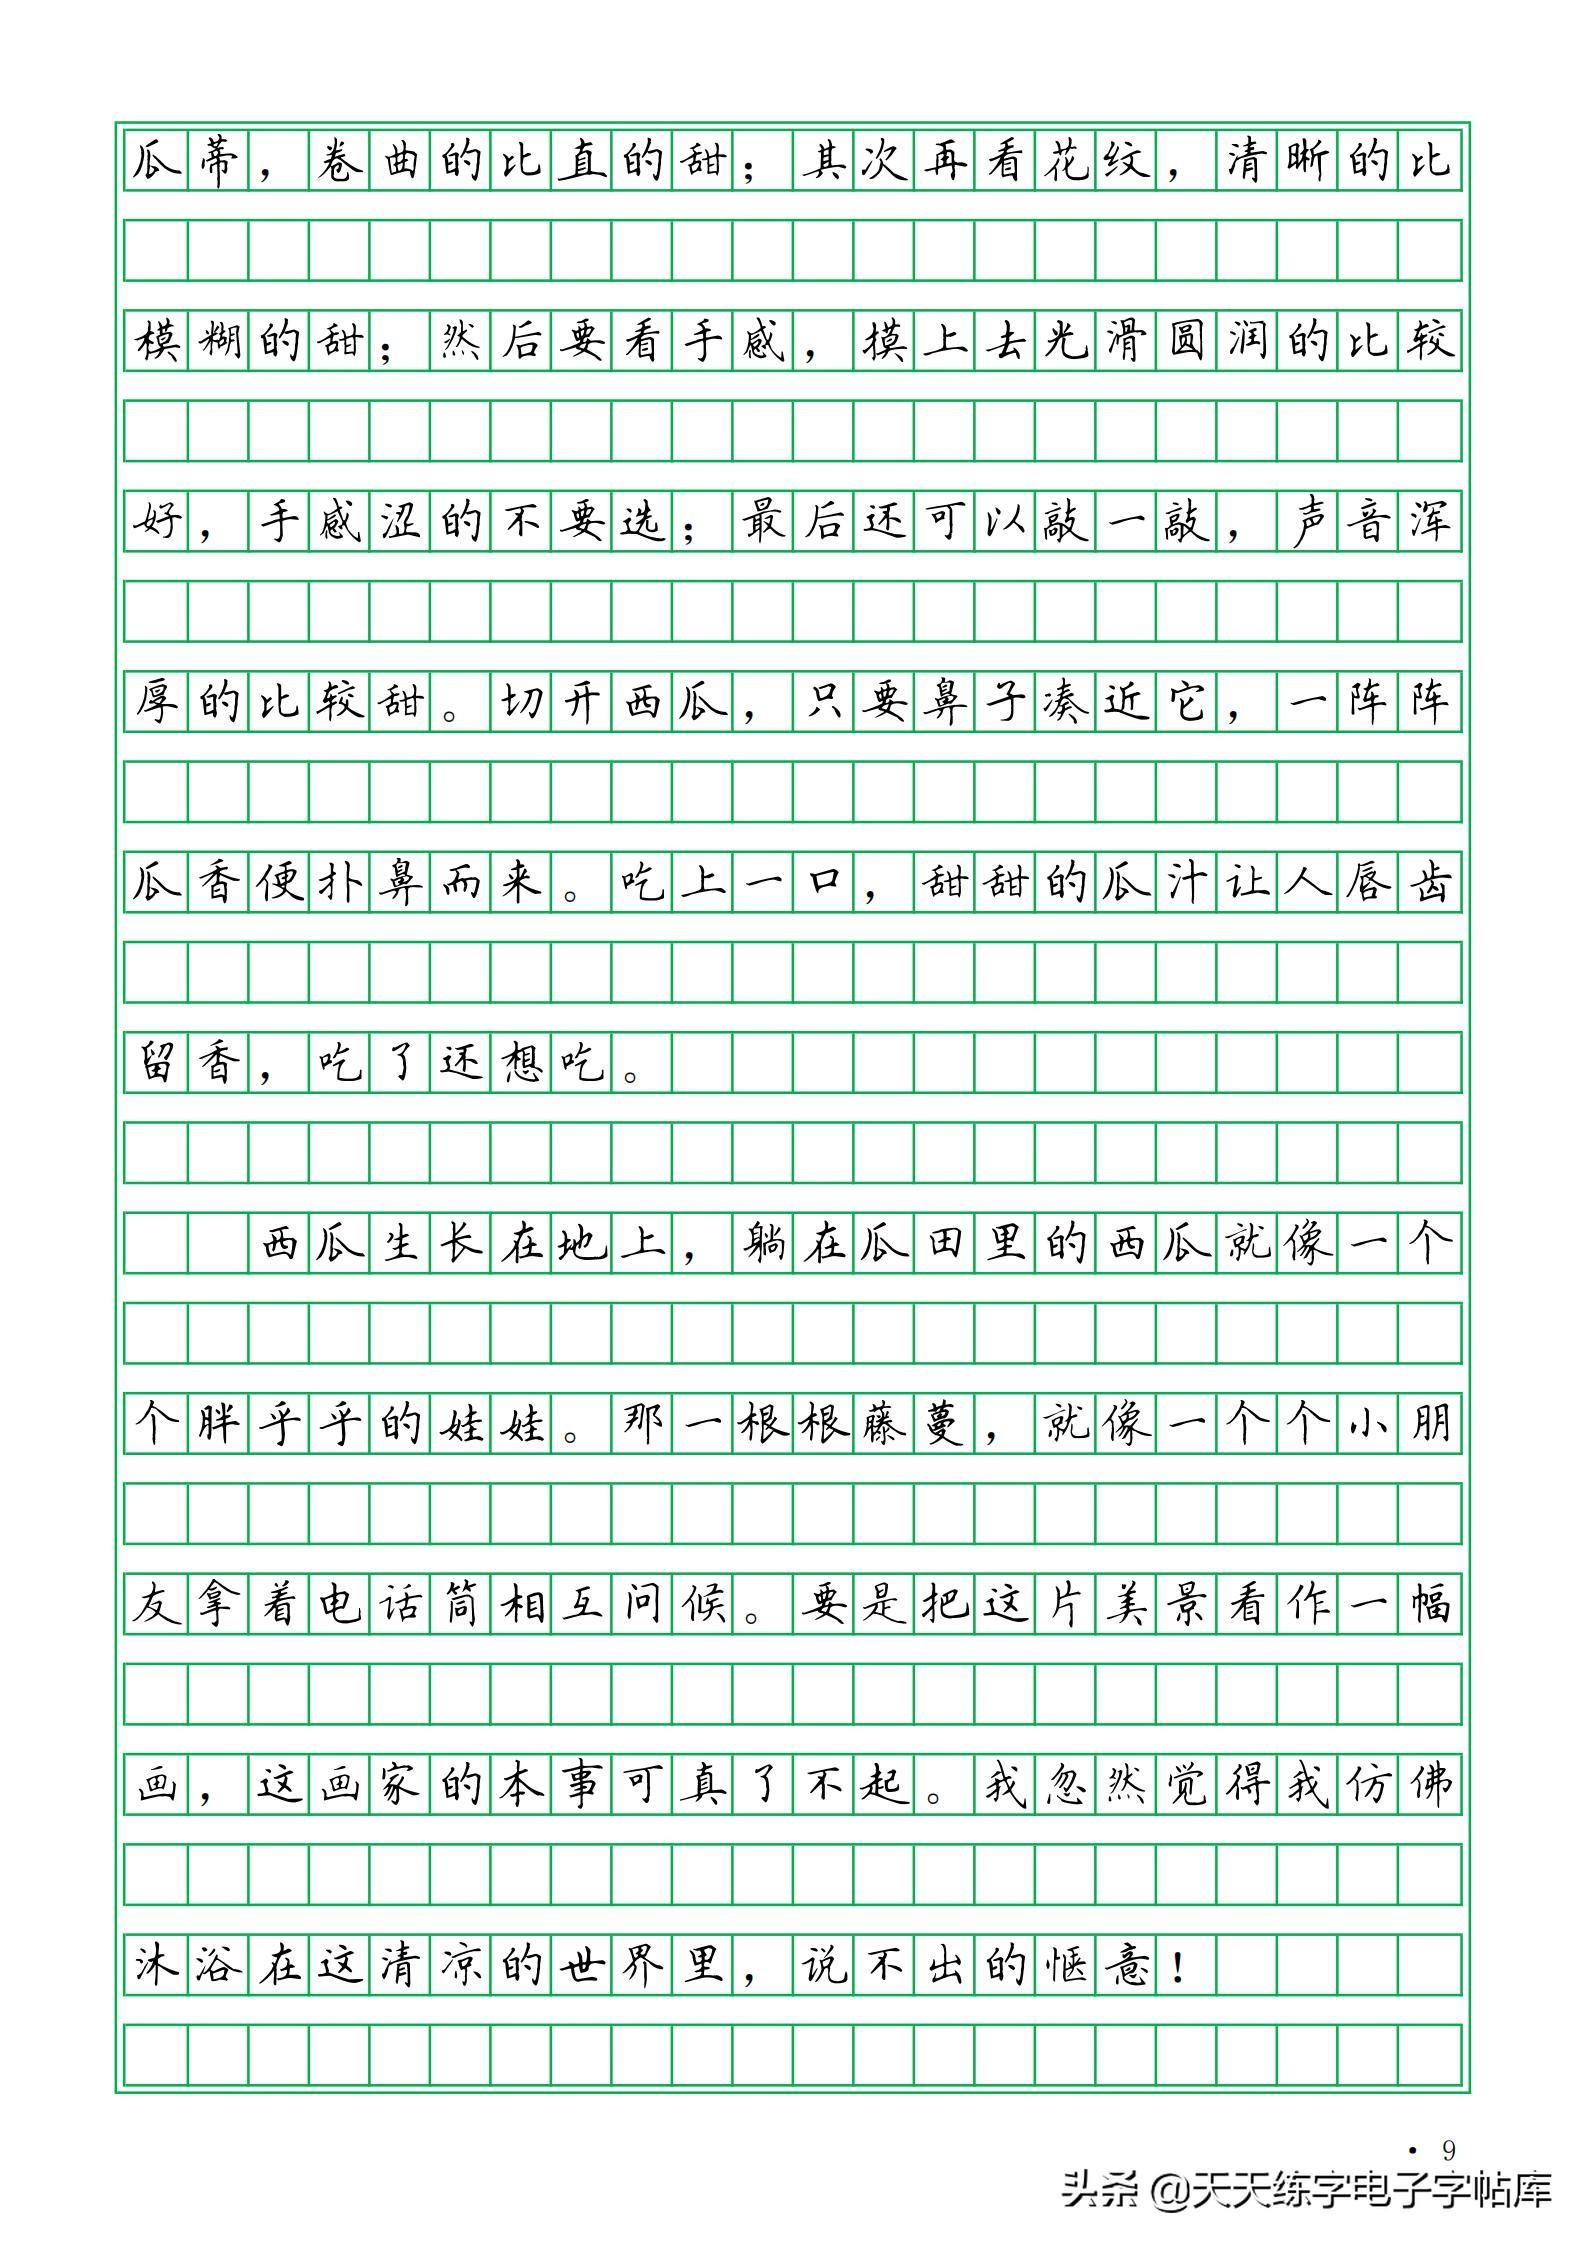 瓜蒂，卷曲的比直的甜；其次再看花纹，清晰的比
模糊的甜；然后要看手感，摸上去光滑圆润的比较
好，手感涩的不要选；最后还可以敲一敲，声音浑
厚的比较甜。切开西瓜，只要鼻子凑近它，一阵阵
瓜香便扑鼻而来。吃上一口，甜甜的瓜汁让人唇齿
留香，吃了还想吃。
西瓜生长在地上，躺在瓜田里的西瓜就像一个
个胖乎乎的娃娃。那一根根藤蔓，就像一个个小朋
友拿着电话筒相互问候。要是把这片美景看作一幅
画，这画家的本事可真了不起。我忽然觉得我仿佛
沐浴在这清凉的世界里，说不出的惬意！
· 9
头条 @天天练字电子字帖库